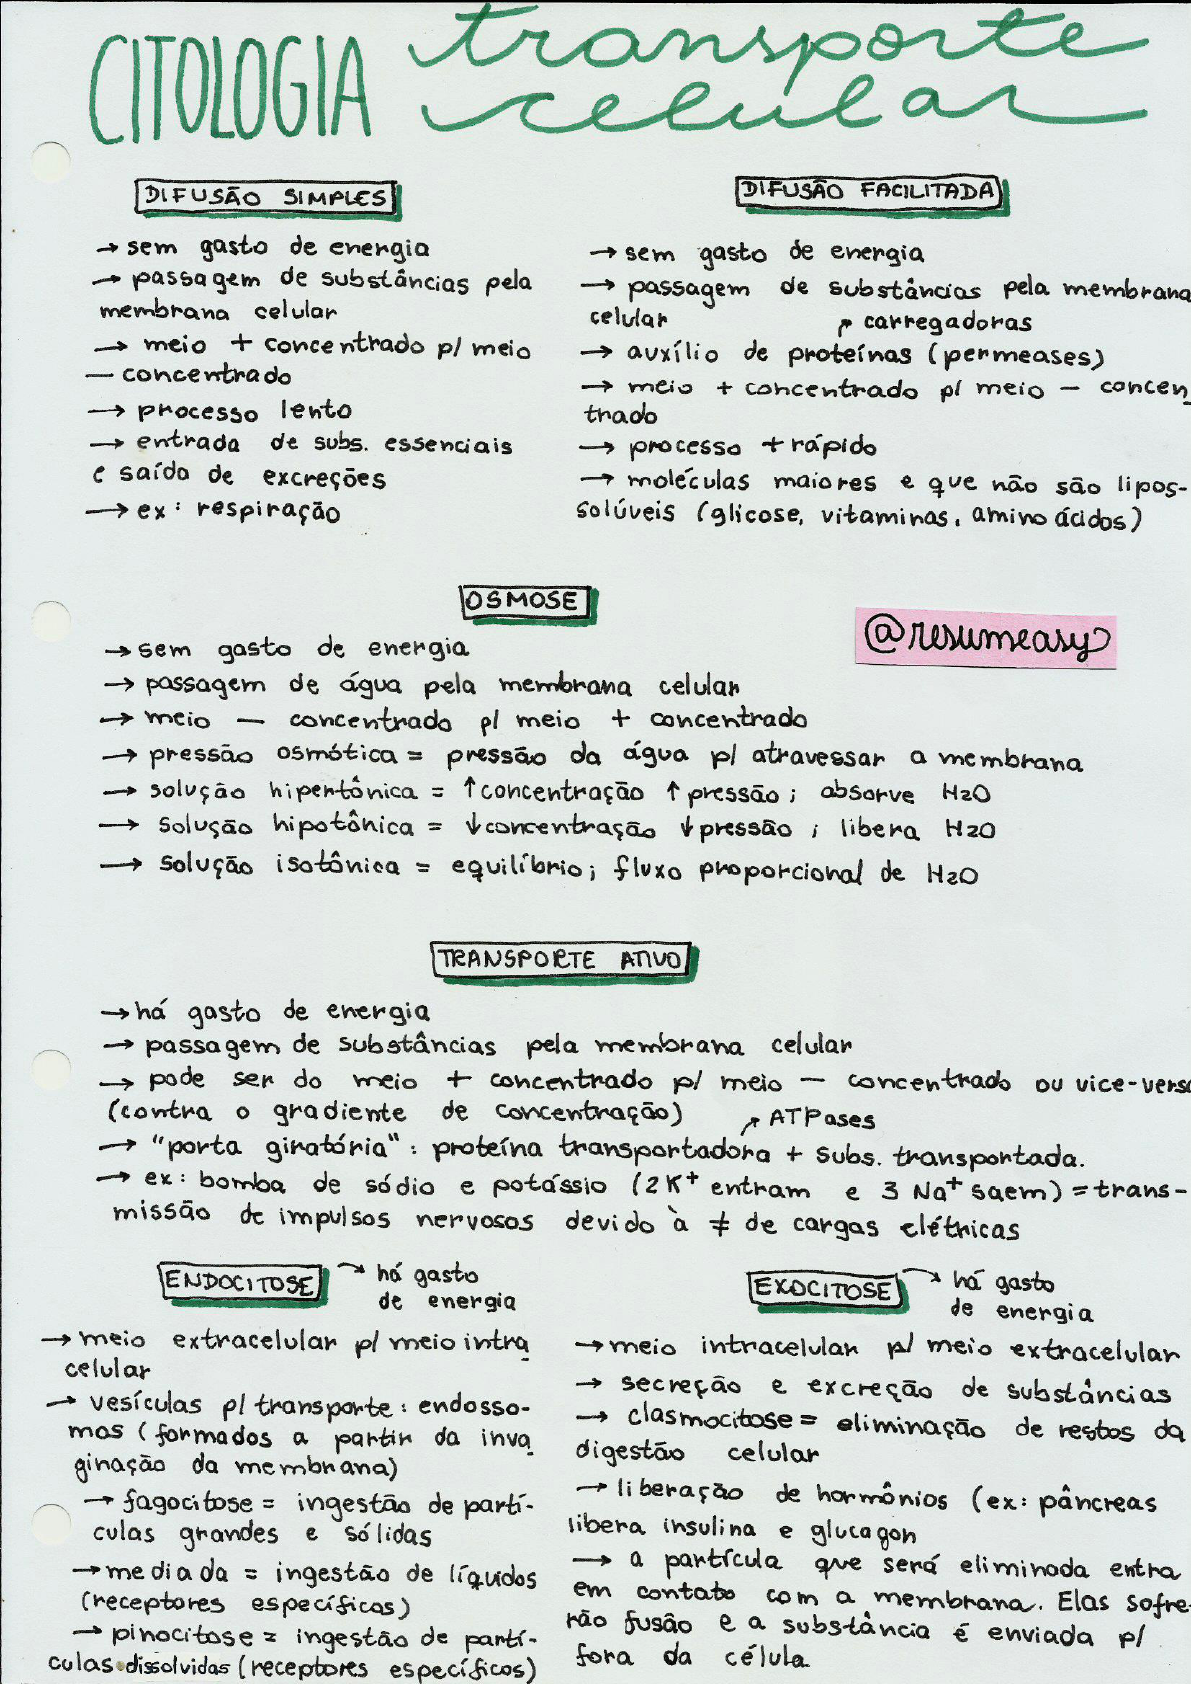 CITOLOGIA transporte
celular
DIFUSÃO SIMPLES
→ sem gasto de energia
→ passagem de substâncias pela
membrana celular
→ meio + concentrado p/ meio
— concentrado
→ processo lento
→ entrada de subs. essenciais
e saída de excreções
→ ex: respiração
DIFUSÃO FACILITADA
→ sem gasto de energia
→ passagem de substâncias pela membrana
celular
↱ carregadoras
→ auxílio de proteínas (permeases)
→ meio + concentrado p/ meio — concen
trado
→ processo + rápido
→ moléculas maiores e que não são lipos-
solúveis (glicose, vitaminas, aminoácidos)
OSMOSE
@resumeasy
→ sem gasto de energia
→ passagem de água pela membrana celular
→ meio — concentrado p/ meio + concentrado
→ pressão osmótica = pressão da água p/ atravessar a membrana
→ solução hipertônica = ↑concentração ↑pressão; absorve H2O
→ solução hipotônica = ↓concentração ↓pressão; libera H2O
→ solução isotônica = equilíbrio; fluxo proporcional de H2O
TRANSPORTE ATIVO
→ há gasto de energia
→ passagem de substâncias pela membrana celular
→ pode ser do meio + concentrado p/ meio — concentrado ou vice-versa
(contra o gradiente de concentração)
↱ ATPases
→ "porta giratória": proteína transportadora + subs. transportada.
→ ex: bomba de sódio e potássio (2K+ entram e 3 Na+ saem) = trans-
missão de impulsos nervosos devido à ≠ de cargas elétricas
ENDOCITOSE → há gasto
de energia
→ meio extracelular p/ meio intra
celular
→ vesículas p/ transporte: endosso-
mos (formados a partir da inva
ginação da membrana)
→ fagocitose = ingestão de partí-
culas grandes e sólidas
→ mediada = ingestão de líquidos
(receptores específicos)
→ pinocitose = ingestão de partí-
culas dissolvidas (receptores específicos)
EXOCITOSE → há gasto
de energia
→ meio intracelular p/ meio extracelular
→ secreção e excreção de substâncias
→ clasmocitose = eliminação de restos da
digestão celular
→ liberação de hormônios (ex: pâncreas
libera insulina e glucagon
→ a partícula que será eliminada entra
em contato com a membrana. Elas sofre-
rão fusão e a substância é enviada p/
fora da célula